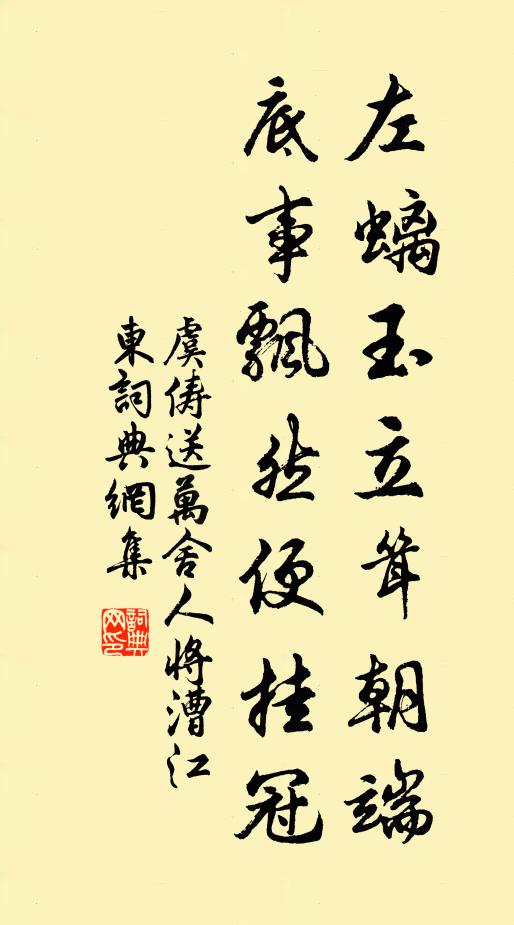 左螭玉立耸朝端
底事飄然便挂冠
虞儔送萬舍人將漕江
東詞典網集
詞典
网印